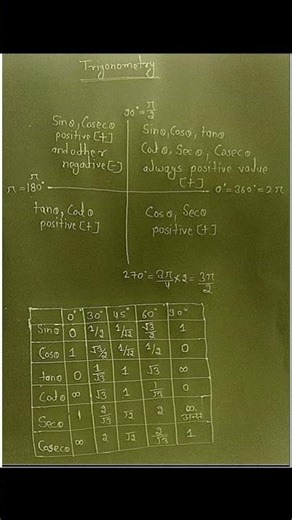 Trigonometry
90° = π/2
Sinθ, Cosecθ
positive [+]
and other
negative [-]
Sinθ, Cosθ, tanθ
Cotθ, Secθ, Cosecθ
always positive value
[+]
π = 180°
0° = 360° = 2π
tanθ, Cotθ
positive [+]
Cosθ, Secθ
positive [+]
270° = 3π/4 × 2 = 3π/2
0° 30° 45° 60° 90°
Sinθ 0 1/2 1/√2 √3/2 1
Cosθ 1 √3/2 1/√2 1/2 0
tanθ 0 1/√3 1 √3 ∞
Cotθ ∞ √3 1 1/√3 0
Secθ 1 2/√3 √2 2 ∞
Cosecθ ∞ 2 √2 2/√3 1